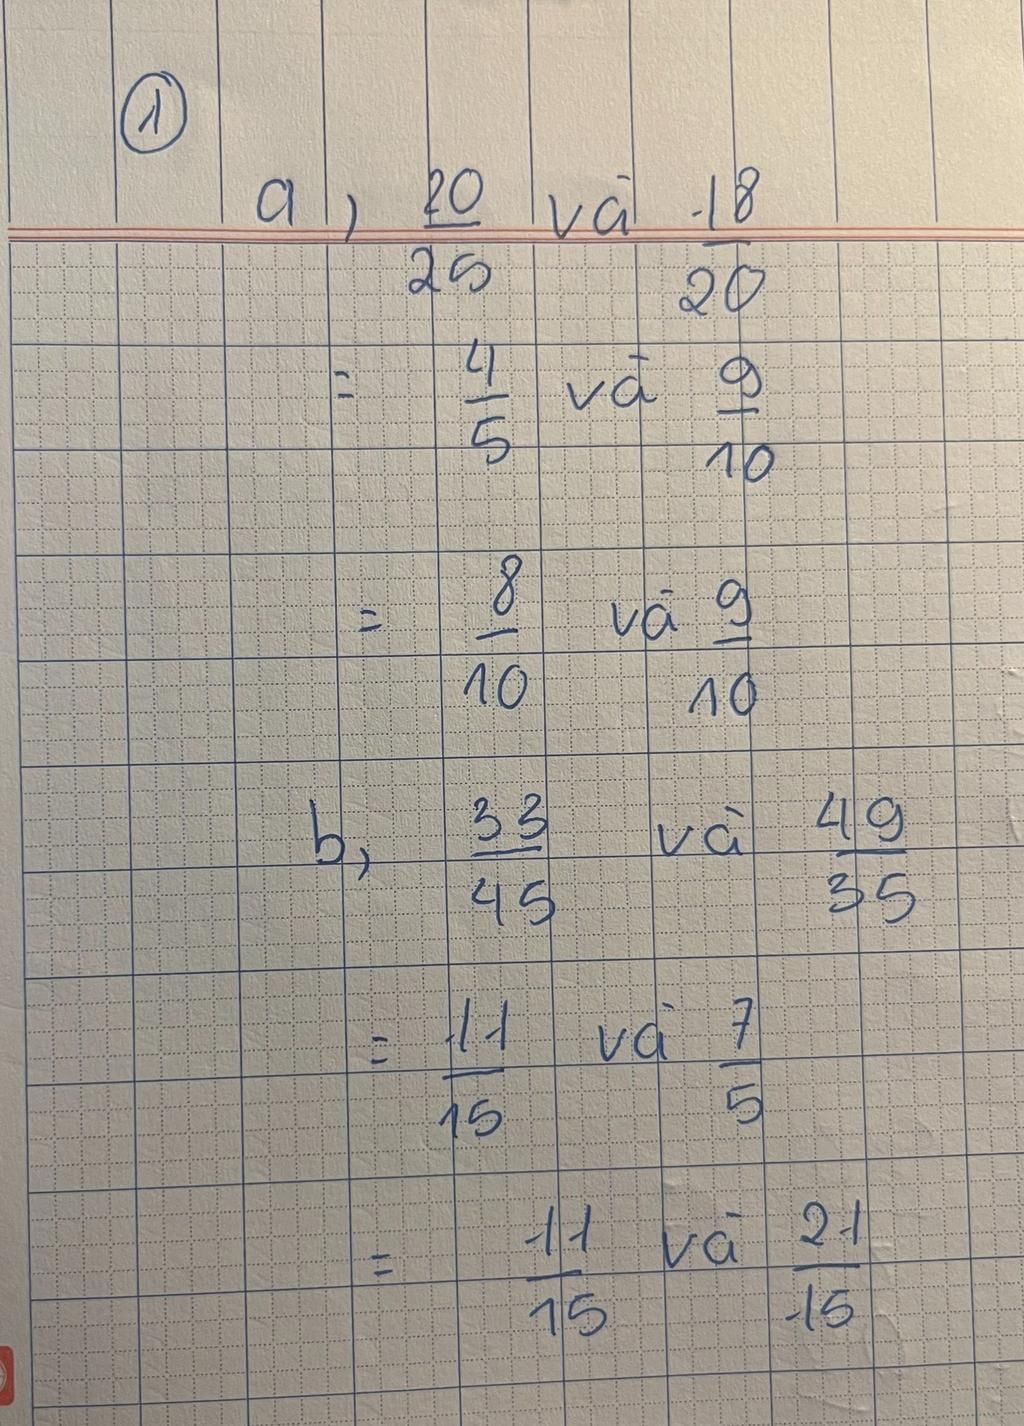 ①
a, 20/25 và 18/20
= 4/5 và 9/10
= 8/10 và 9/10
b, 33/45 và 49/35
= 11/15 và 7/5
= 11/15 và 21/15